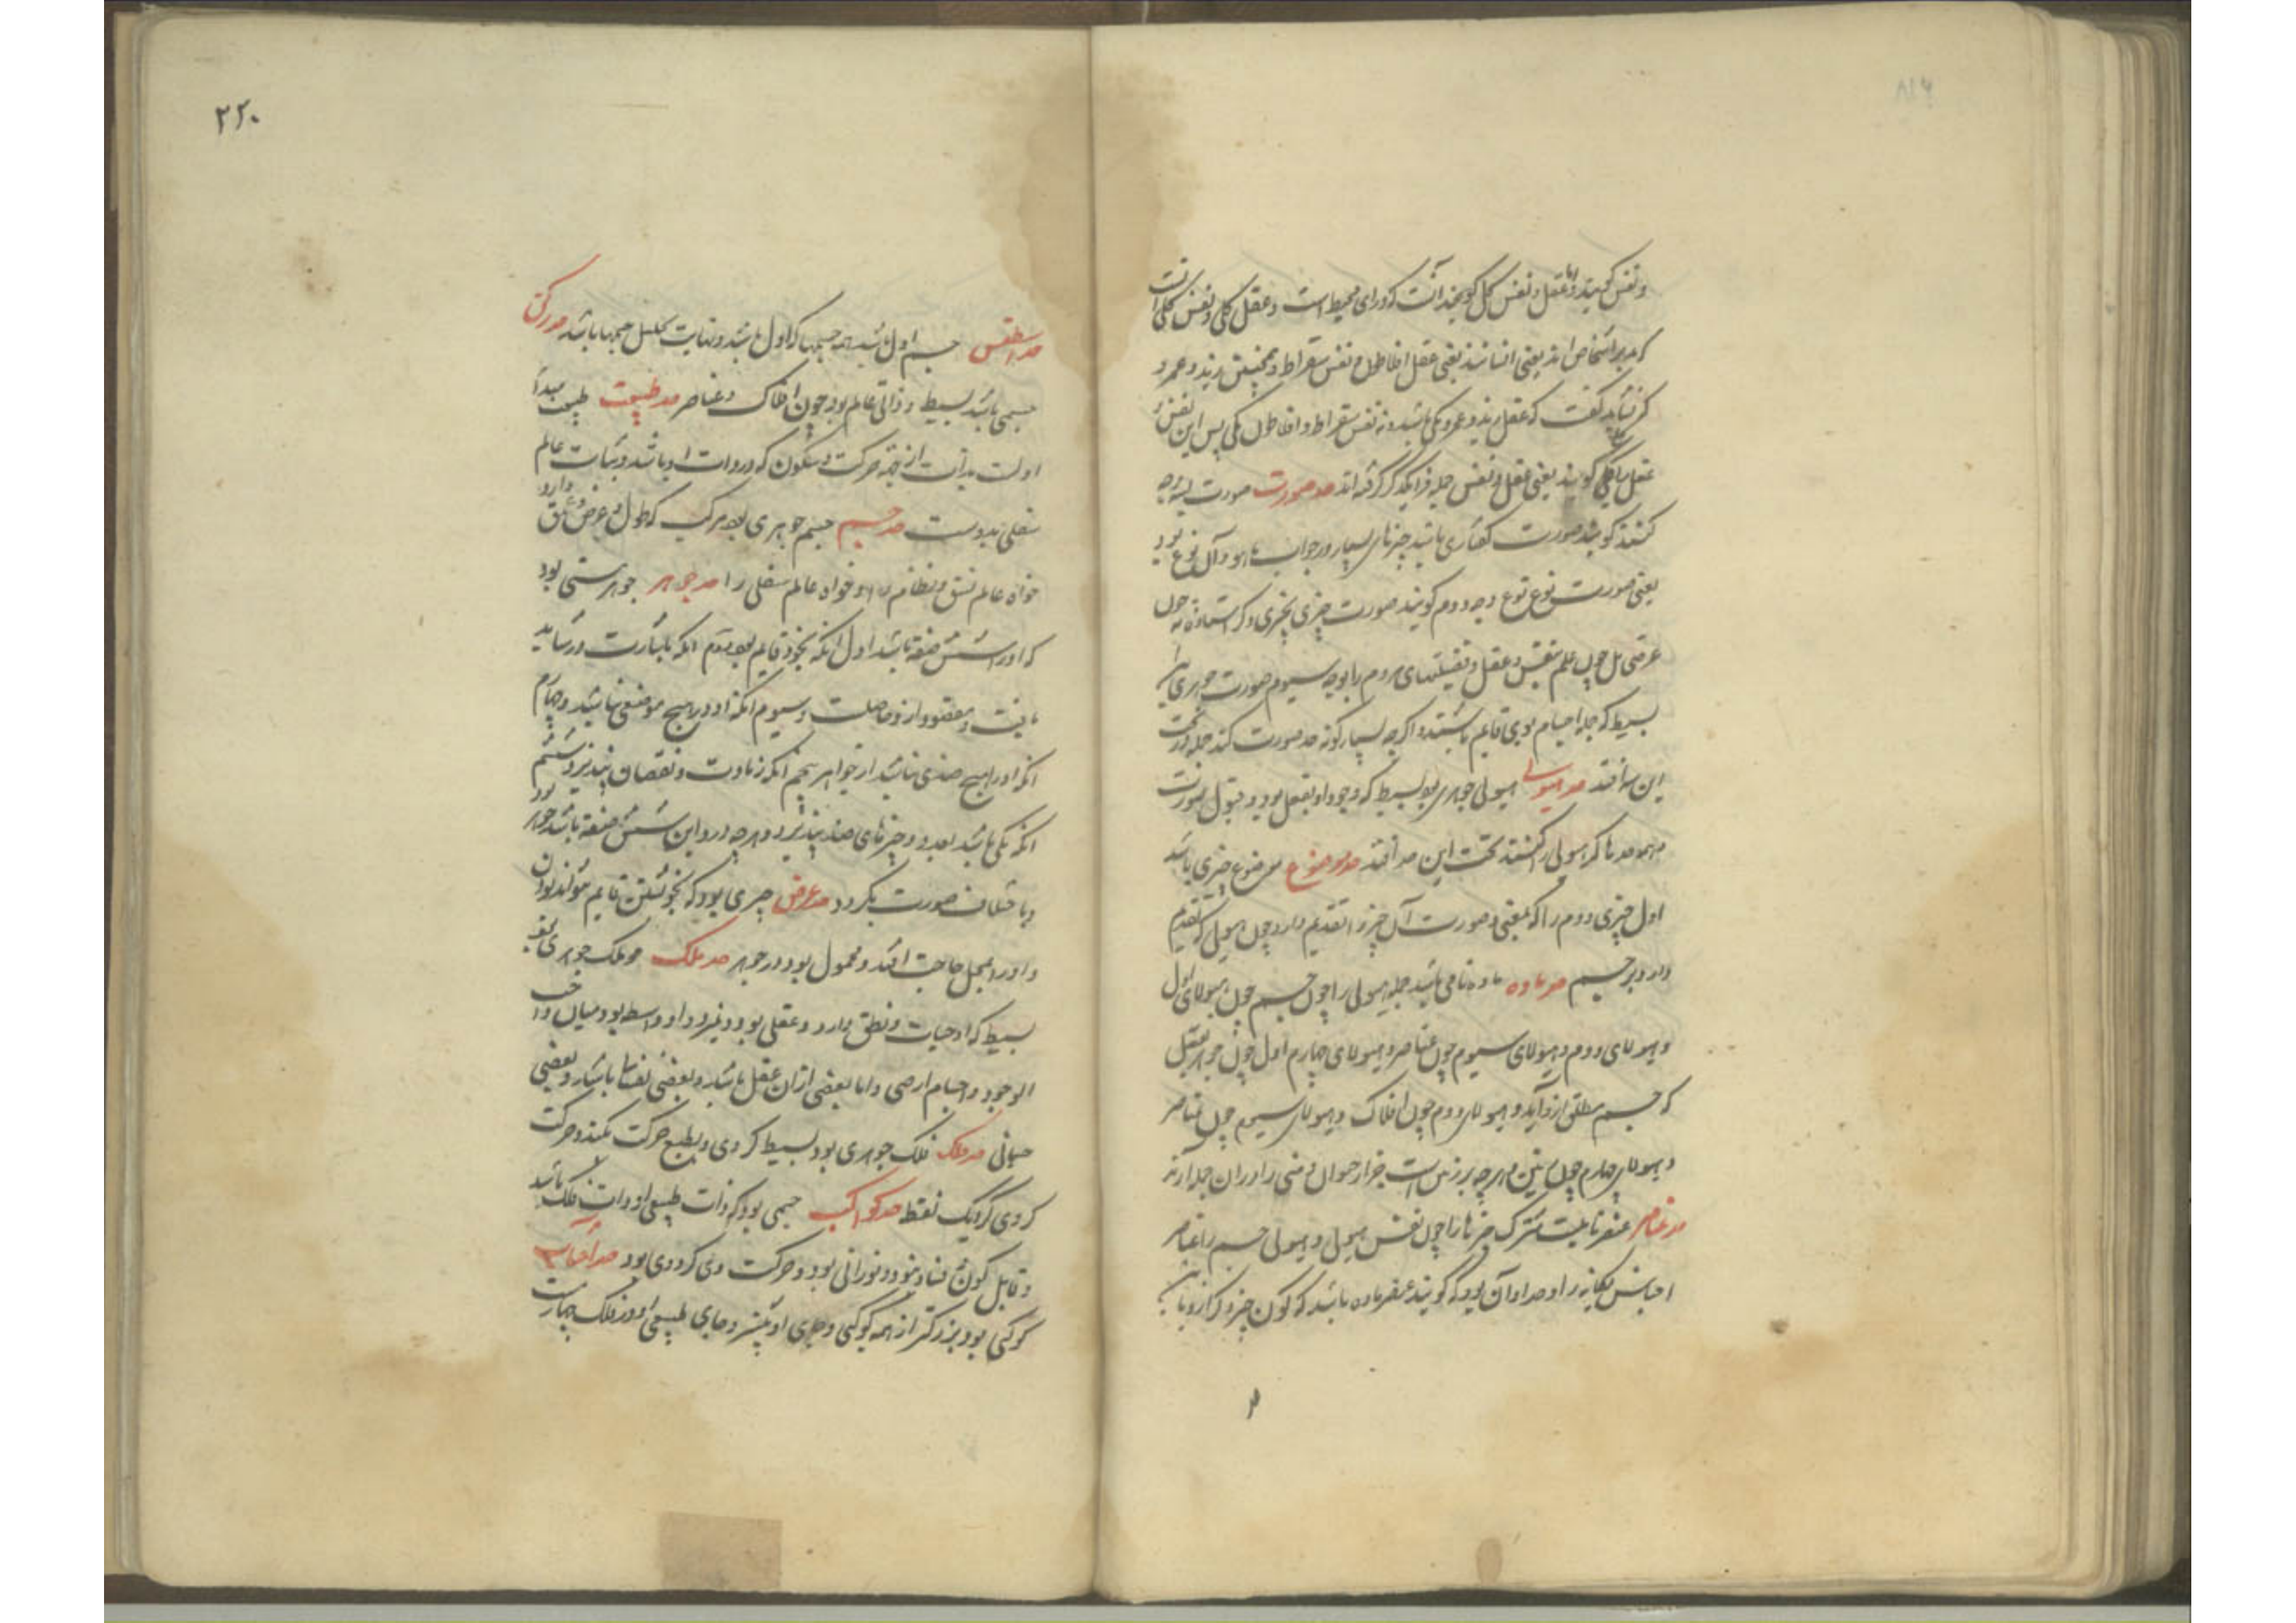 ونفس گویند و اما عقل و نفس کل گویند آنست که ورای محیط است و عقل کلی و نفس کلی آنست
که مدبر اشخاص اند یعنی انسانند یعنی عقل افلاطون و نفس سقراط و همچنین زید و عمرو
که نشاید گفت که عقل زید و عمرو یکی باشد و نه نفس سقراط و افلاطون یکی پس این نفس و
عقل را کلی گویند یعنی عقل و نفس جمله فرا یکدیگر گرفته اند حد صورت صورت بسه وجه
کنند گویند صورت گفتاری باشد چیزهای بسیار در جواب ما هو و آن نوع بود
یعنی صورت نوع نوع وجه دوم گویند صورت چیزی بچیزی دگر استاده نه چون
عرضی بل چون علم بنفس و عقل و فضیلتهای مردم را بوجه سیوم صورت جوهری
بسیط که جمله اجسام بوی قایم باشند و اگرچه بسیار گونه حد صورت کنند جمله در تحت
این سه افتد حد هیولی هیولی جوهری بود بسیط که وجود او بفعل بود و قبول صورت
همه حدها که هیولی را گفتند تحت این حد افتد حد موضوع موضوع چیزی باشد
اول چیزی دوم را که بمعنی و صورت آن چیز را تقدیم دارد چون هیولی که تقدیم
دارد بر جسم حد ماده ماده نامی باشد جمله هیولی را چون جسم چون هیولای اول
و هیولای دوم و هیولای سیوم چون عناصر و هیولای چهارم اول چون جوهر عقل
که جسم مطلق ازو آید و هیولای دوم چون افلاک و هیولای سیوم چون عناصر
و هیولای چهارم چون زمین و هرچه بر زمین است
حد عناصر عنصر نامیست مشترک چیزها را چون نفس هیولی و هیولی جسم را عناصر
اجناس یگانه را و حد او آن بود که گویند عنصر ماده باشد که کون چیز دگر ازو باشد
۲۲۰
حد اسطقس جسم اول باشد همه جسمها که اول باشد و نهایت تحلیل جسمها باشد حد رکن
جسمی باشد بسیط و ذاتی عالم بود چون افلاک و عناصر حد طبیعت طبیعت مبدأ
اولست بذات از جنبه حرکت و سکون که در ذات او باشد و ثبات عالم
سفلی بدوست حد جسم جسم جوهری بود مرکب که طول و عرض و عمق دارد
خواه عالم نسق و نظام را و خواه عالم سفلی را حد جوهر جوهر هستی بود
که او را شش صفة باشد اول آنکه بخود قایم بود دوم آنکه باشارت در شاید
یافت و مقصود ازو حاصلست و سیوم آنکه او در هیچ موضعی نباشد و چهارم
آنکه او را هیچ ضدی نباشد از جواهر پنجم آنکه زیادت و نقصان نپذیرد ششم
آنکه یکی باشد بعدد و چیزهای ضد پذیرد و هرچه درو این شش صفة باشد جوهر بود
و باختلاف صورت نگردد حد عرض چیزی بود که بخویشتن قایم نتواند بودن
و او را بمحل حاجت افتد و محمول بود در جوهر حد ملک ملک جوهری بود
بسیط که او حیات و نطق دارد و عقلی بود و نمیرد و او واسطه بود میان واجب
الوجود و اجسام ارضی و اما بعضی ازان عقل باشد و بعضی نفسانی باشد و بعضی
جسمانی حد فلک فلک جوهری بود بسیط کروی و بطبع حرکت کند و حرکت
کروی گرد یک نقطه حد کواکب جسمی بود که ذات طبیعی او ذات فلک باشد
و قابل کون و فساد نبود و نورانی بود و حرکت وی کروی بود حد آفتاب
کوکبی بود بزرگتر از همه کوکبی و جای طبیعی او در فلک چهارم است